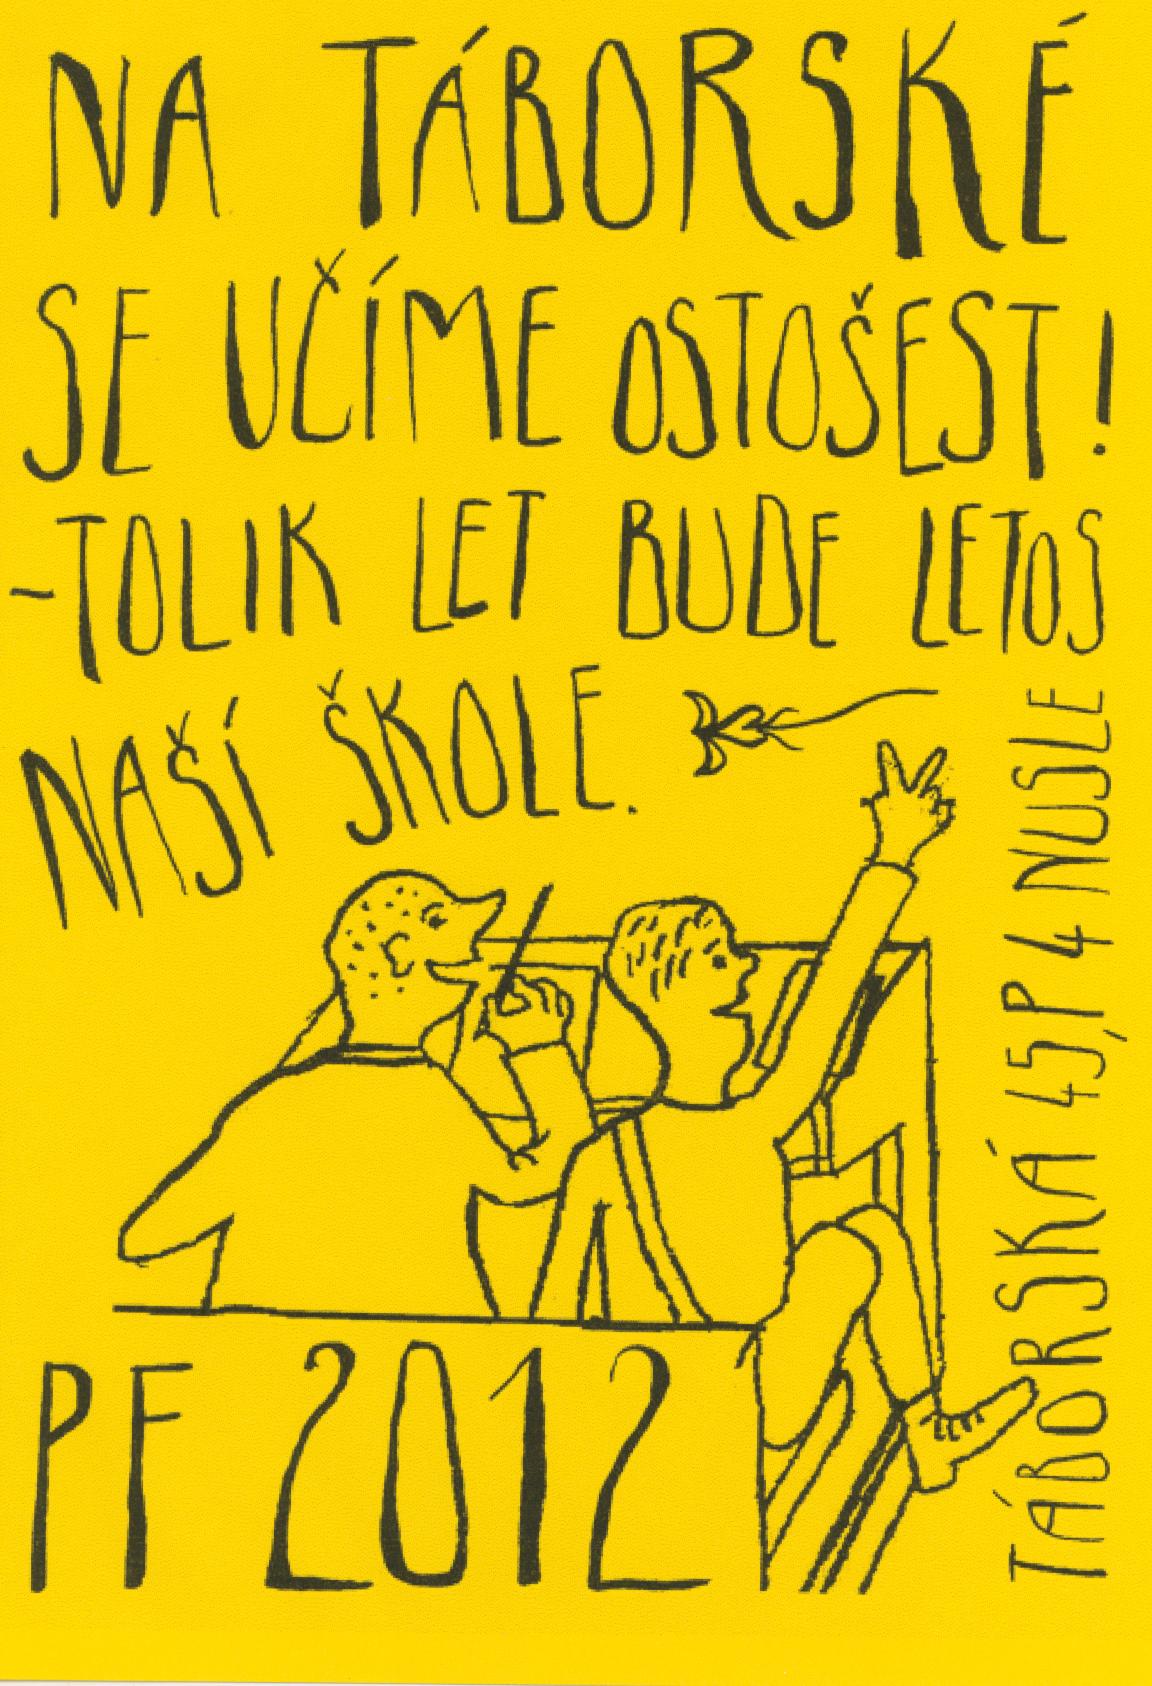 NA TÁBORSKÉ
SE UČÍME OSTOŠEST!
-TOLIK LET BUDE LETOS
NAŠÍ ŠKOLE.
PF 2012
TÁBORSKÁ 45, P 4 NUSLE